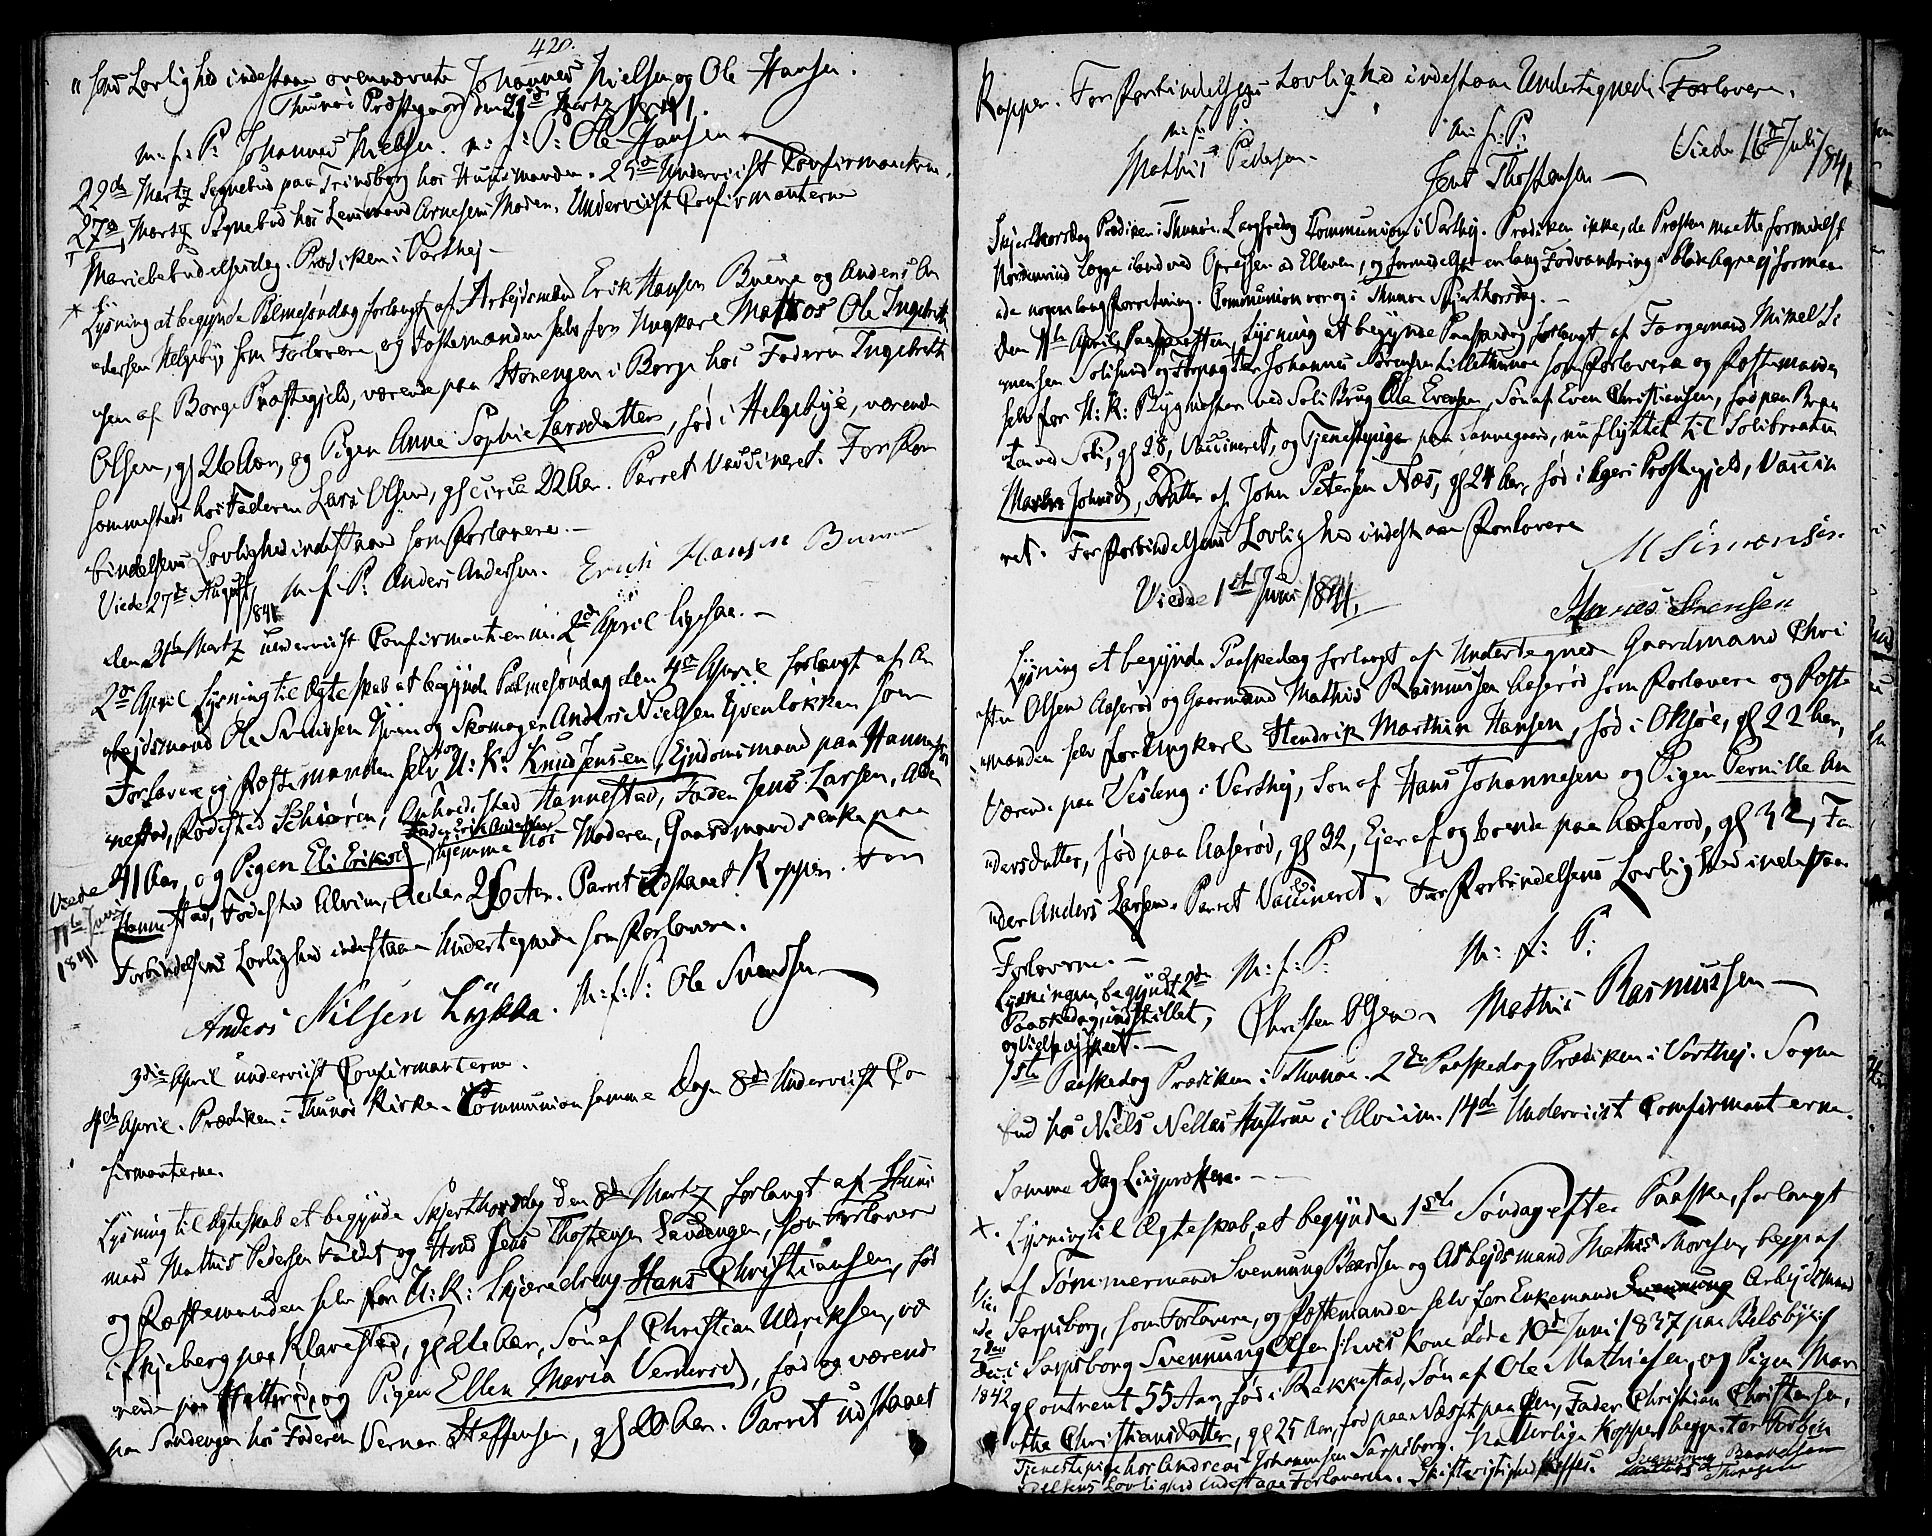 420.
"sens Lovlighed indestaar ovennævnte Johannes Nielsen og Ole Hansen.
Thunøe Præstegaard den 21de Martz 1841.
m: f: P: Johannes Nielsen. m: f: P: Ole Hansen
22de Martz Sognebud paa Trindborg hos Huusmanden. 25de Underviist Confirmanterne.
27de Martz Sognebud hos Lensmand Arnesens Moder. Underviist Confirmanterne
Mariebebudelsesdag. Prædiken i Varthej
Lysning at begynde Palmesøndag forlangt af Arbejdsmand Erik Hansen Buene og Anders An
dersen Helgebÿ som Forlovere, og Fæstemanden selv for Ungkarl Mathos Ole Ingebreth
sen af Borge Præstegjeld, værende paa Storengen i Borge hos Faderen Ingebreth
Olsen, gl 26 Aar, og Pigen Anne Sophie Larsdatter, fød i Helgebye, værende
sammesteds hos Faderen Lars Olsen, gl circa 22 Aar. Parret Vaccineret. For For
bindelsens Lovlighed indestaaer som Forlovere.
Viede 27de August 1841 m. f. P. Anders Andersen. Erich Hansen Buene
den 31te Martz underviist Confirmanterne. 2de April ligesaa.
2de April Lysning til Ægteskab at begynde Palmesøndag den 4de April forlangt af Ar
bejdsmand Ole Svendsen Hven og Skomager Anders Nielsen Qvenløkken som
Forlovere og Fæstemanden selv for U: K: Knud Jensen, Ejendomsmand paa Hanne
nestad, Fødested Schiøren, Opholdssted Hannestad, Fader Jens Larsen, Alder
41 Aar, og Pigen Eli Eriksd, Fader Erik Andersen hjemme hos Moderen, Gaardmandsenke paa
Viede 11te Juni 1841
Hannestad, Fødested Alvim, Alder 26 Aar. Parret udstaaet Kopper. For
Forbindelsens Lovlighed indestaaer Undertegnede som Forlovere.
Anders Nilsen Lykka. m: f: P: Ole Svendsen
3die April underviist Confirmanterne.
4de April. Prædiken i Thunøe Kirke. Communion samme Dag. 8de Underviist Con
firmanterne.
Lysning til Ægteskab at begynde Skjerthorsdag den 8de Martz forlangt af Huus
mand Mathis Pedersen og Huusmd Jens Thostensen Sandengen, som Forlovere
og Fæstemanden selv for U: K: Skjærdreng Hans Christiansen, fød
i Skjeberg paa Klavestad, gl Aar, Søn af Christian Uldriksen, væ
rende paa Hatterød, og Pigen Ellen Maria Vernersd, fød og værende
paa Sandengen hos Faderen Verner Steffensen, gl 20 Aar. Parret udstaaet
Kopper. For Forbindelsens Lovlighed indestaaer Undertegnede Forlovere.
m: f: P: m: f: P: Viede 16de Juli 1841
Mathis Pedersen. Jens Thostensen
Skjerthorsdag Prædiken i Thunøe. Langfredag Communion i Varthej. Prædiken ikke, da Præsten maatte formedelst
Nordenvind lægge i land ved Opreisen ad Elleven, og formedelst en lang Fodvandring i slade Agre ej forma
ade nogen lang Forretning. Communion var og i Thunøe Skjerthorsdag.
den 11te April Paaskeaften, Lysning at begynde Paaskedag forlangt af Forgemand Mikkel Si
mensen Solisund og Forpagter Johannes Sørensen Lillethunøe som Forlovere og Fæstemanden
selv for U: K: Bygmester ved Soli Brug Ole Evensen, Søn af Even Christiansen, fød paa Bran
ved Soli, gl 28, Vaccineret, og Tjenestepigen paa Sannegaard, nu flyttet til Solibraaten
Maren Johnsd, Datter af John Petersen Næs, gl 24 Aar, fød i Agers Præstegjeld, Vaccin
ret. For Forbindelsens Lovlighed indestaar Forlovere
M Simensen
Viede 1ste Juni 1841.
Hanes Sørensen
Lysning at begynde Paaskedag forlangt af Undertegnede Gaardmand Chri
sten Olsen Aaserød og Gaardmand Mathis Rasmussen Aaserød som Forlovere og Fæste
manden selv for Ungkarl Hendrik Marthin Hansen, fød i Oksøe, gl 22 Aar,
Værende paa Visleng i Varthej, Søn af Hans Johannesen og Pigen Pernille An
dersdatter, fød paa Aaserød, gl 32, Ejer af og boende paa Aaserød, gl 32, Fa
der Anders Larsen. Parret Vaccineret. For Forbindelsens Lovlighed indestaar
Forloverne.
Lysningen begyndt 2de
Paaskedag, indstillet,
og Vielse ej skeet.
m: f: P. m: f: P:
Christen Olsen Mathis Rasmussen
1ste Paaskedag Prædiken i Thunøe. 2den Paaskedag Prædiken i Varthej. Sogne
bud hos Niels Nellas Hustrue i Alvim. 14de Underviist Confirmanterne.
Samme Dag Liigprædken.
x. Lysning til Ægteskab, at begynde 1ste Søndag efter Paaske, forlangt
af Tømmermand Svennung Baardsen og Arbejdsmand Mathis Thoresen, begge af
Sarpsborg, som Forlovere, og Fæstemanden selv for Enkemand Arbejdsmand
i Sarpsborg Svennung Olsen, hvis Kone døde 10de Juni 1837 paa Belsbÿe
Viede 2den Juni 1842
gl omtrent 55 Aar, fød i Rakkestad, Søn af Ole Mathiesen, og Pigen Mar
the Christiansdatter, gl 25 Aar, fød paa Næsset paa Øen, Fader Christian Christensen,
Tjenestepige hos Andreas Johannesen Sarpsborg. Naturlige Kopper begge. For Forbin
delsens Lovlighed indestaaer Forloverne. Skifterigtighed haves.
Svennung Baardsen
Mathis Thoresen